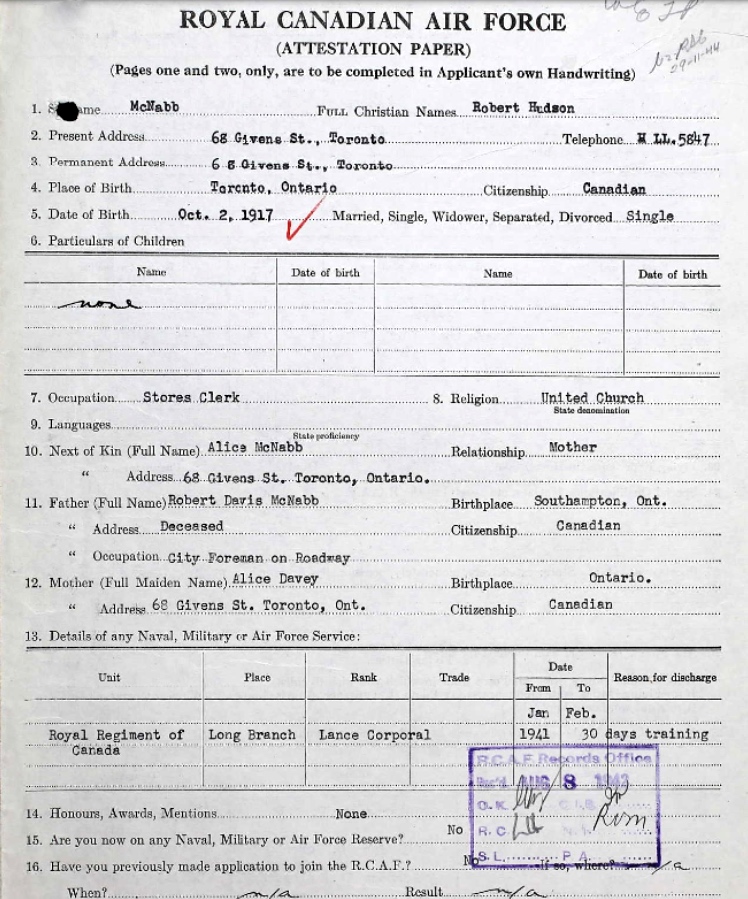 ROYAL CANADIAN AIR FORCE
(ATTESTATION PAPER)
(Pages one and two, only, are to be completed in Applicant's own Handwriting)
09-11-44
1. S ame McNabb Full Christian Names Robert Hudson
2. Present Address 68 Givens St., Toronto Telephone LL.5847
3. Permanent Address 6 8 Givens St., Toronto
4. Place of Birth Toronto, Ontario Citizenship Canadian
5. Date of Birth Oct. 2, 1917 Married, Single, Widower, Separated, Divorced Single
6. Particulars of Children
Name Date of birth Name Date of birth
none
7. Occupation Stores Clerk 8. Religion United Church
State denomination
9. Languages
State proficiency
10. Next of Kin (Full Name) Alice McNabb Relationship Mother
" Address 68 Givens St. Toronto, Ontario.
11. Father (Full Name) Robert Davis McNabb Birthplace Southampton, Ont.
" Address Deceased Citizenship Canadian
" Occupation City Foreman on Roadway
12. Mother (Full Maiden Name) Alice Davey Birthplace Ontario.
" Address 68 Givens St. Toronto, Ont. Citizenship Canadian
13. Details of any Naval, Military or Air Force Service:
Unit Place Rank Trade Date Reason for discharge
From To
Jan Feb.
Royal Regiment of Long Branch Lance Corporal 1941 30 days training
Canada
R.C.A.F. Records Office
Rec'd AUG 8 1943
O.K.
R.C.
S.L. P.A.
14. Honours, Awards, Mentions None
15. Are you now on any Naval, Military or Air Force Reserve? No
16. Have you previously made application to join the R.C.A.F.? No If so, where? n/a
When? n/a Result n/a